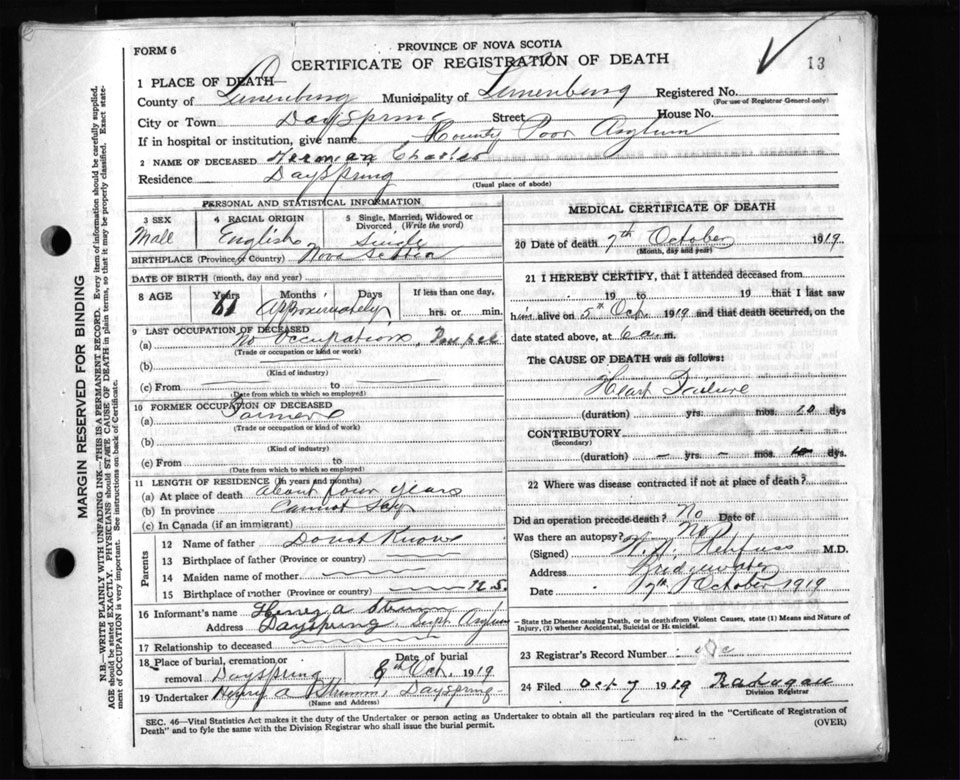 FORM 6
PROVINCE OF NOVA SCOTIA
CERTIFICATE OF REGISTRATION OF DEATH
13
1 PLACE OF DEATH
County of Lunenburg Municipality of Lunenburg Registered No.
(For use of Registrar General only)
City or Town Dayspring Street House No.
If in hospital or institution, give name County Poor Asylum
2 NAME OF DECEASED Herman Charles
Residence Dayspring
(Usual place of abode)
PERSONAL AND STATISTICAL INFORMATION
3 SEX 4 RACIAL ORIGIN 5 Single, Married, Widowed or Divorced (Write the word)
Male English Single
BIRTHPLACE (Province or Country) Nova Scotia
DATE OF BIRTH (month, day and year)
8 AGE Years Months Days If less than one day,
61 Approximately hrs. or min.
9 LAST OCCUPATION OF DECEASED
(a) No Occupation, Pauper
(Trade or occupation or kind or work)
(b)
(Kind of industry)
(c) From to
(Date from which to which so employed)
10 FORMER OCCUPATION OF DECEASED
(a) Farmer
(Trade or occupation or kind of work)
(b)
(Kind of industry)
(c) From to
(Date from which to which so employed)
11 LENGTH OF RESIDENCE (In years and months)
(a) At place of death about four years
(b) In province Cannot Say
(c) In Canada (if an immigrant)
Parents
12 Name of father Donot Know
13 Birthplace of father (Province or country)
14 Maiden name of mother
15 Birthplace of mother (Province or country)
16 Informant's name Henry A
Address Dayspring Supt Asylum
17 Relationship to deceased
18 Place of burial, cremation or removal Dayspring Date of burial 8th Oct. 1919
19 Undertaker Henry A Dayspring
(Name and Address)
MEDICAL CERTIFICATE OF DEATH
20 Date of death 7th October 1919
(Month, day and year)
21 I HEREBY CERTIFY, that I attended deceased from
19 to 19 that I last saw
him alive on 5th Oct. 1919 and that death occurred, on
date stated above, at 6 a.m.
The CAUSE OF DEATH was as follows:
Heart Failure
(duration) yrs. mos. 10 dys
CONTRIBUTORY
(Secondary)
(duration) – yrs – mos. dys
22 Where was disease contracted if not at place of death?
Did an operation precede death? No Date of
Was there an autopsy? No
(Signed) M.D.
Address Bridgewater
Date 7th October 1919
— State the Disease causing Death, or in death from Violent Causes, state (1) Means and Nature of
Injury, (2) whether Accidental, Suicidal or Homicidal.
23 Registrar's Record Number
24 Filed Oct 7 1919
Division Registrar
SEC. 46—Vital Statistics Act makes it the duty of the Undertaker or person acting as Undertaker to obtain all the particulars required in the "Certificate of Registration of
Death" and to fyle the same with the Division Registrar who shall issue the burial permit.
(OVER)
MARGIN RESERVED FOR BINDING
N.B.—WRITE PLAINLY WITH UNFADING INK—THIS IS A PERMANENT RECORD. Every item of information should be carefully supplied.
AGE should be stated EXACTLY. PHYSICIANS should STATE CAUSE OF DEATH in plain terms, so that it may be properly classified. Exact statement of OCCUPATION is very important. See instructions on back of Certificate.